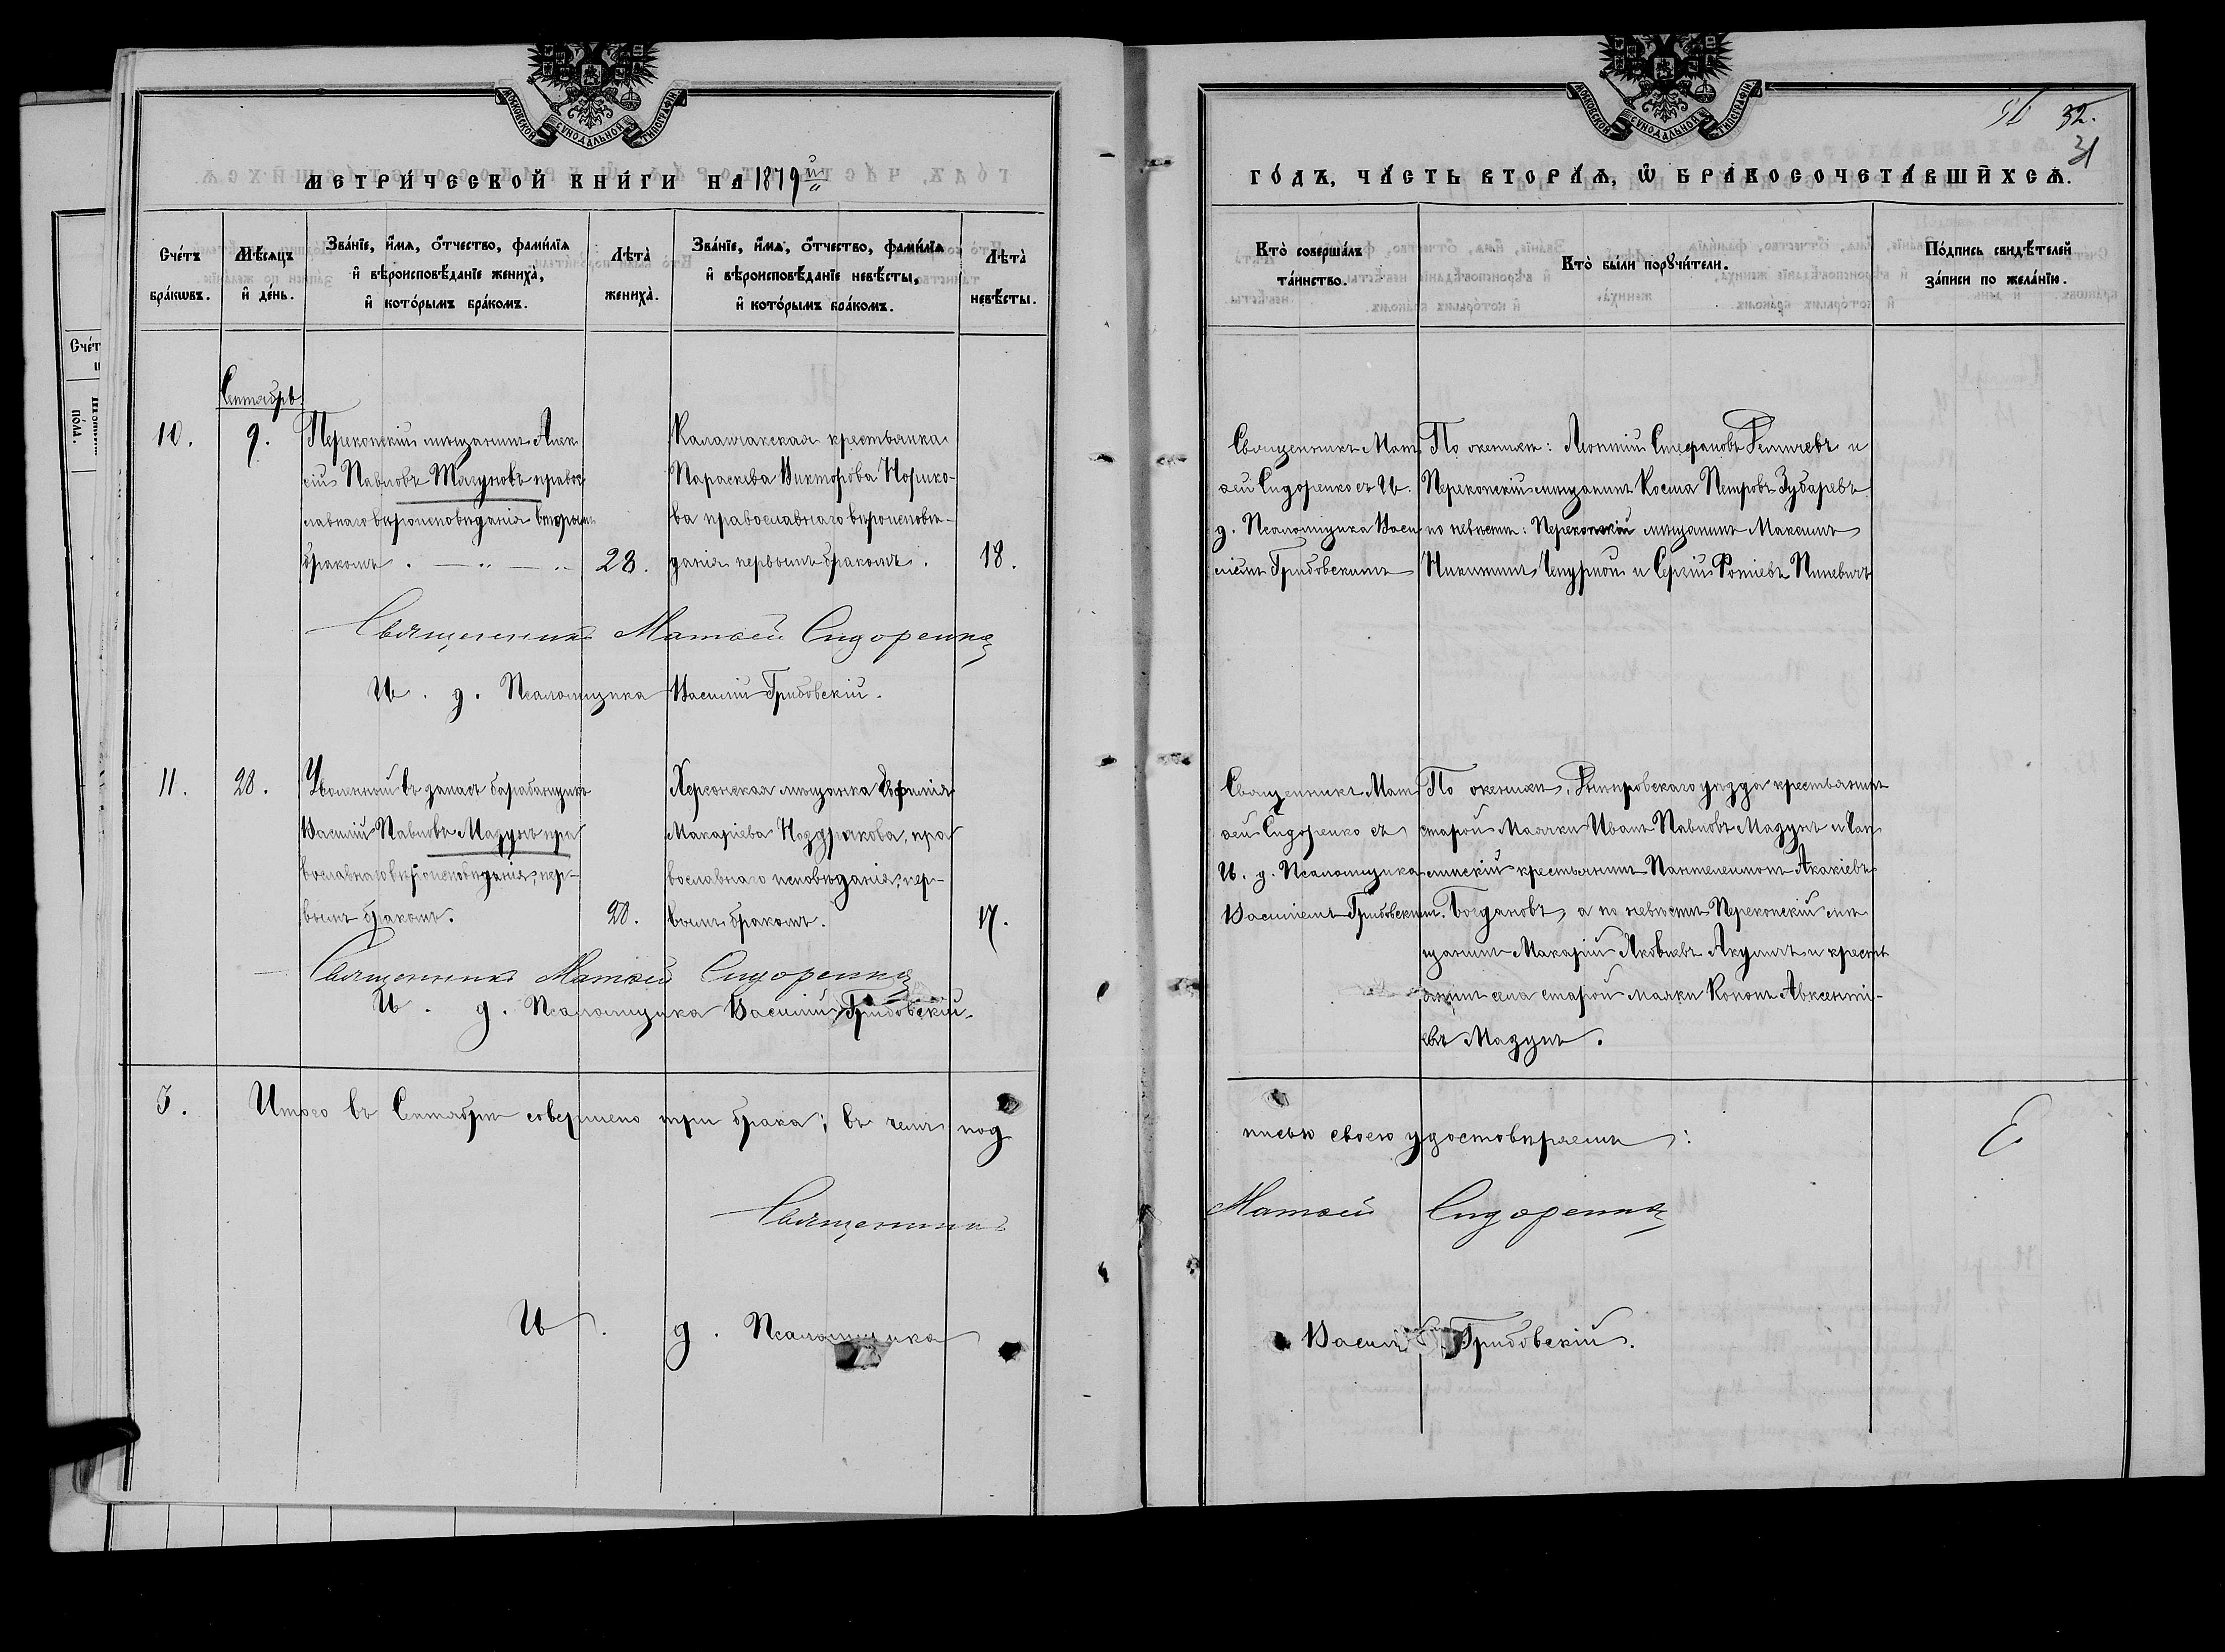 МОСКОВСКОЙ СУНОДАЛЬНОЙ ТИПОГРАФІИ.
МЕТРИ́ЧЕСКОЙ КНИ́ГИ НА 1879й
Сче́тъ бра́кѡвъ.
Мѣ́сяцъ и҆ де́нь.
Зва́нїе, и҆́мѧ, ѻ҆́тчество, фами́лїѧ
и҆ вѣроисповѣ́данїе жениха̀,
и҆ кото́рымъ бра́комъ.
Лѣта̀ жениха̀.
Зва́нїе, и҆́мѧ, ѻ҆́тчество, фами́лїѧ
и҆ вѣроисповѣ́данїе невѣ́сты,
и҆ кото́рымъ бра́комъ.
Лѣта̀ невѣ́сты.
Сентябрь
10.
9.
Перекопскій мѣщанинъ Алек
сій Павловъ Тягуновъ право
славнаго вѣроисповѣданія вторым
бракомъ.
28.
Каланчакская крестьянка
Параскева Викторова Норико-
ва православнаго вѣроисповѣ-
данія первымъ бракомъ.
18.
Священникъ Матѳей Сидоренко
И. д. Псаломщика Василій Грибовскій.
11.
20.
Уволенный въ запасъ барабанщикъ
Василій Павловъ Мазунъ пра
вославнаго вѣроисповѣданія, пер-
вымъ бракомъ.
20.
Херсонская мѣщанка Евфимія
Макаріева Ноздрякова, пра
вославнаго исповѣданія, пер-
вымъ бракомъ.
17.
Священникъ Матѳей Сидоренко
И. д. Псаломщика Василій Грибовскій.
3.
Итого въ Сентябрѣ совершено три брака; въ чемъ под
Священникъ
И. д. Псаломщика
МОСКОВСКОЙ СУНОДАЛЬНОЙ ТИПОГРАФІИ.
32.
31
ГО́ДЪ, ЧА́СТЬ ВТОРА́Ѧ, Ѡ҆ БРАКОСОЧЕТА́ВШИХСѦ.
Кто̀ соверша́лъ
та́инство.
Кто̀ бы́ли порꙋчи́тели.
По́дпись свидѣ́телей
за́писи по жела́нїю.
Священникъ Мат
ѳей Сидоренко съ И.
д. Псаломщика Васи
ліемъ Грибовскимъ
По женихѣ: Леонтій Стефановъ и
Перекопскій мѣщанинъ Косма Петровъ Зубаревъ
по невѣстѣ: Перекопскій мѣщанинъ Максимъ
Никитинъ Чепурной и Сергій Фотіевъ Пиневичъ
Священникъ Мат
ѳей Сидоренко съ
И. д. Псаломщика
Василіемъ Грибовским.
По женихѣ, Днѣпровскаго уѣзда крестьянинъ
старой Маячки Иванъ Павловъ Мазунъ и Чап
линскій крестьянинъ Пантелеимонъ Акакіевъ
Богдановъ, а по невѣстѣ Перекопскій мѣ
щанинъ Макарій Яковлевъ Акуличъ и кресть
янинъ села старой маяки Кононъ Авксенті-
евъ Мазунъ.
писью своею удостовѣряемъ:
Матѳей Сидоренко
Василій Грибовскій.